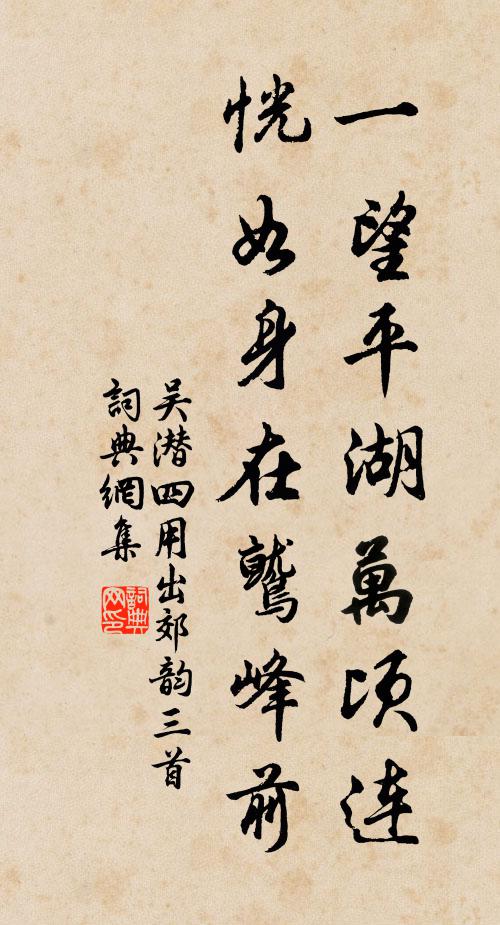 一望平湖萬頃連
恍如身在鷲峰前
吴潜四用出郊韵三首
詞典網集
詞典
网印